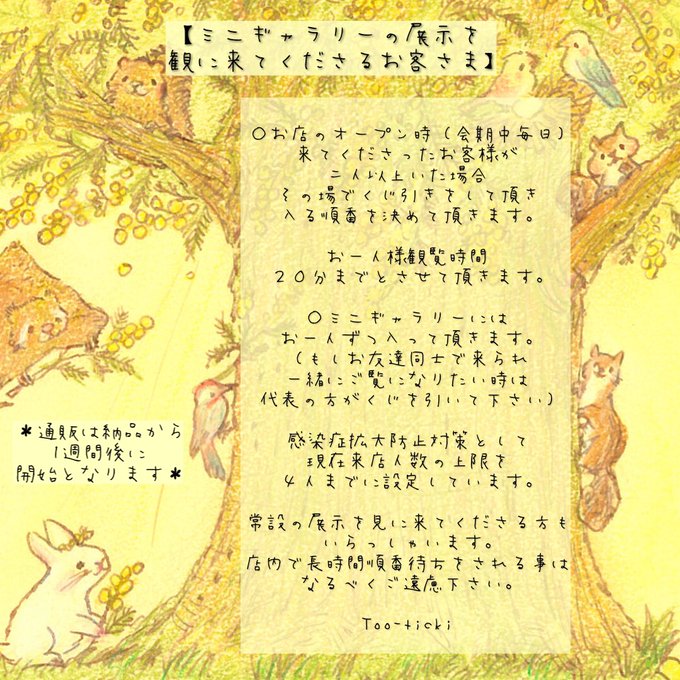 【ミニギャラリーの展示を
観に来てくださるお客さま】
〇お店のオープン時(会期中毎日)
来てくださったお客様が
二人以上いた場合
その場でくじ引きをして頂き
入る順番を決めて頂きます。
お一人様観覧時間
20分までとさせて頂きます。
〇ミニギャラリーには
お一人ずつ入って頂きます。
(もしお友達同士で来られ
一緒にご覧になりたい時は
代表の方がくじを引いて下さい)
感染症拡大防止対策として
現在来店人数の上限を
4人までに設定しています。
常設の展示を見に来てくださる方も
いらっしゃいます。
店内で長時間順番待ちをされる事は
なるべくご遠慮下さい。
Too-ticki
*通販は納品から
1週間後に
開始となります*